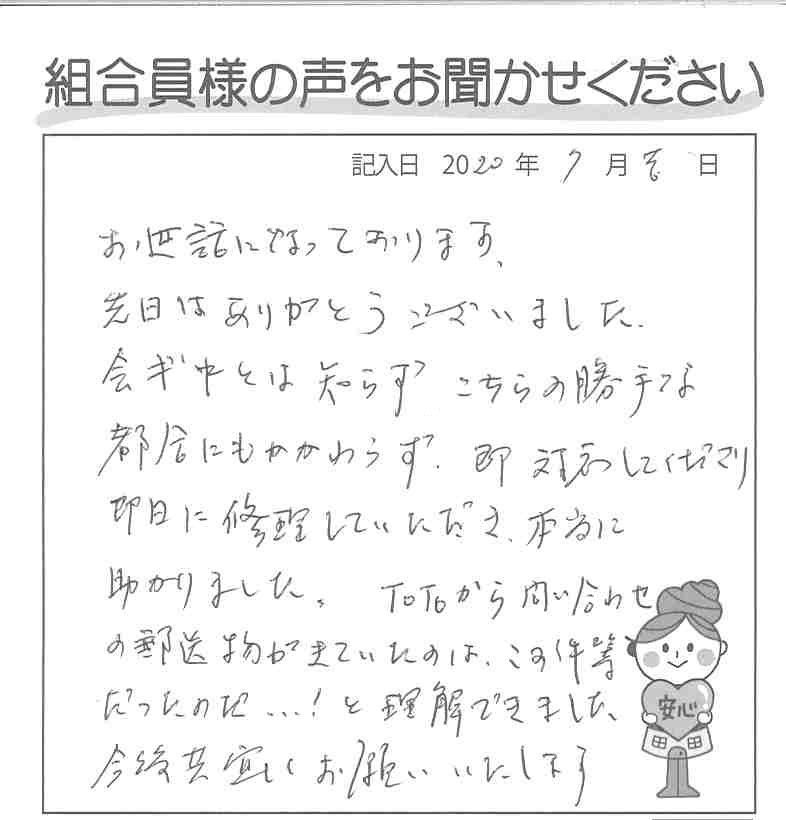 組合員様の声をお聞かせください
記入日 2020年 7月 日
お世話になっております、
先日はありがとうございました.
会ギ中とは知らず こちらの勝手な
都合にもかかわらず、即 対応してくださり
即日に修理していただき、本当に
助かりました。 TOTOから問い合わせ
の郵送物がきていたのは、この件等
だったのだ...!と理解できました、
今後共宜しくお願いいたします
安心